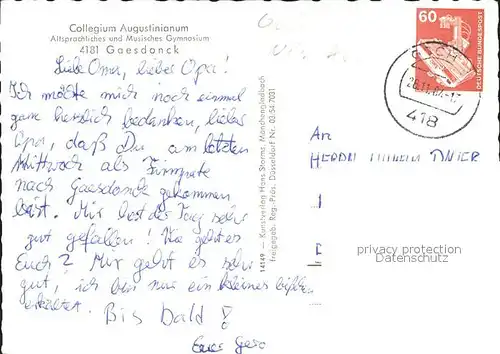 Collegium Augustinianum
Altsprachliches und Musisches Gymnasium
4181 Gaesdonck
Liebe Oma, lieber Opa!
Ich möchte mich noch einmal
ganz herzlich bedanken, lieber
Opa, daß Du am letzten
Mittwoch als Firmpate
nach Gaesdonck gekommen
bist. Mir hat der Tag sehr
gut gefallen! Wie geht es
Euch? Mir geht es sehr
gut, ich bin nur ein kleines bißchen
erkältet. Bis bald!
Euer
14149 — Kunstverlag Hans Storms, Mönchengladbach
freigegeb. Reg.-Präs. Düsseldorf Nr. 03-54-7031
60
DEUTSCHE BUNDESPOST
GOCH
418
An
HERRN
privacy protection
Datenschutz